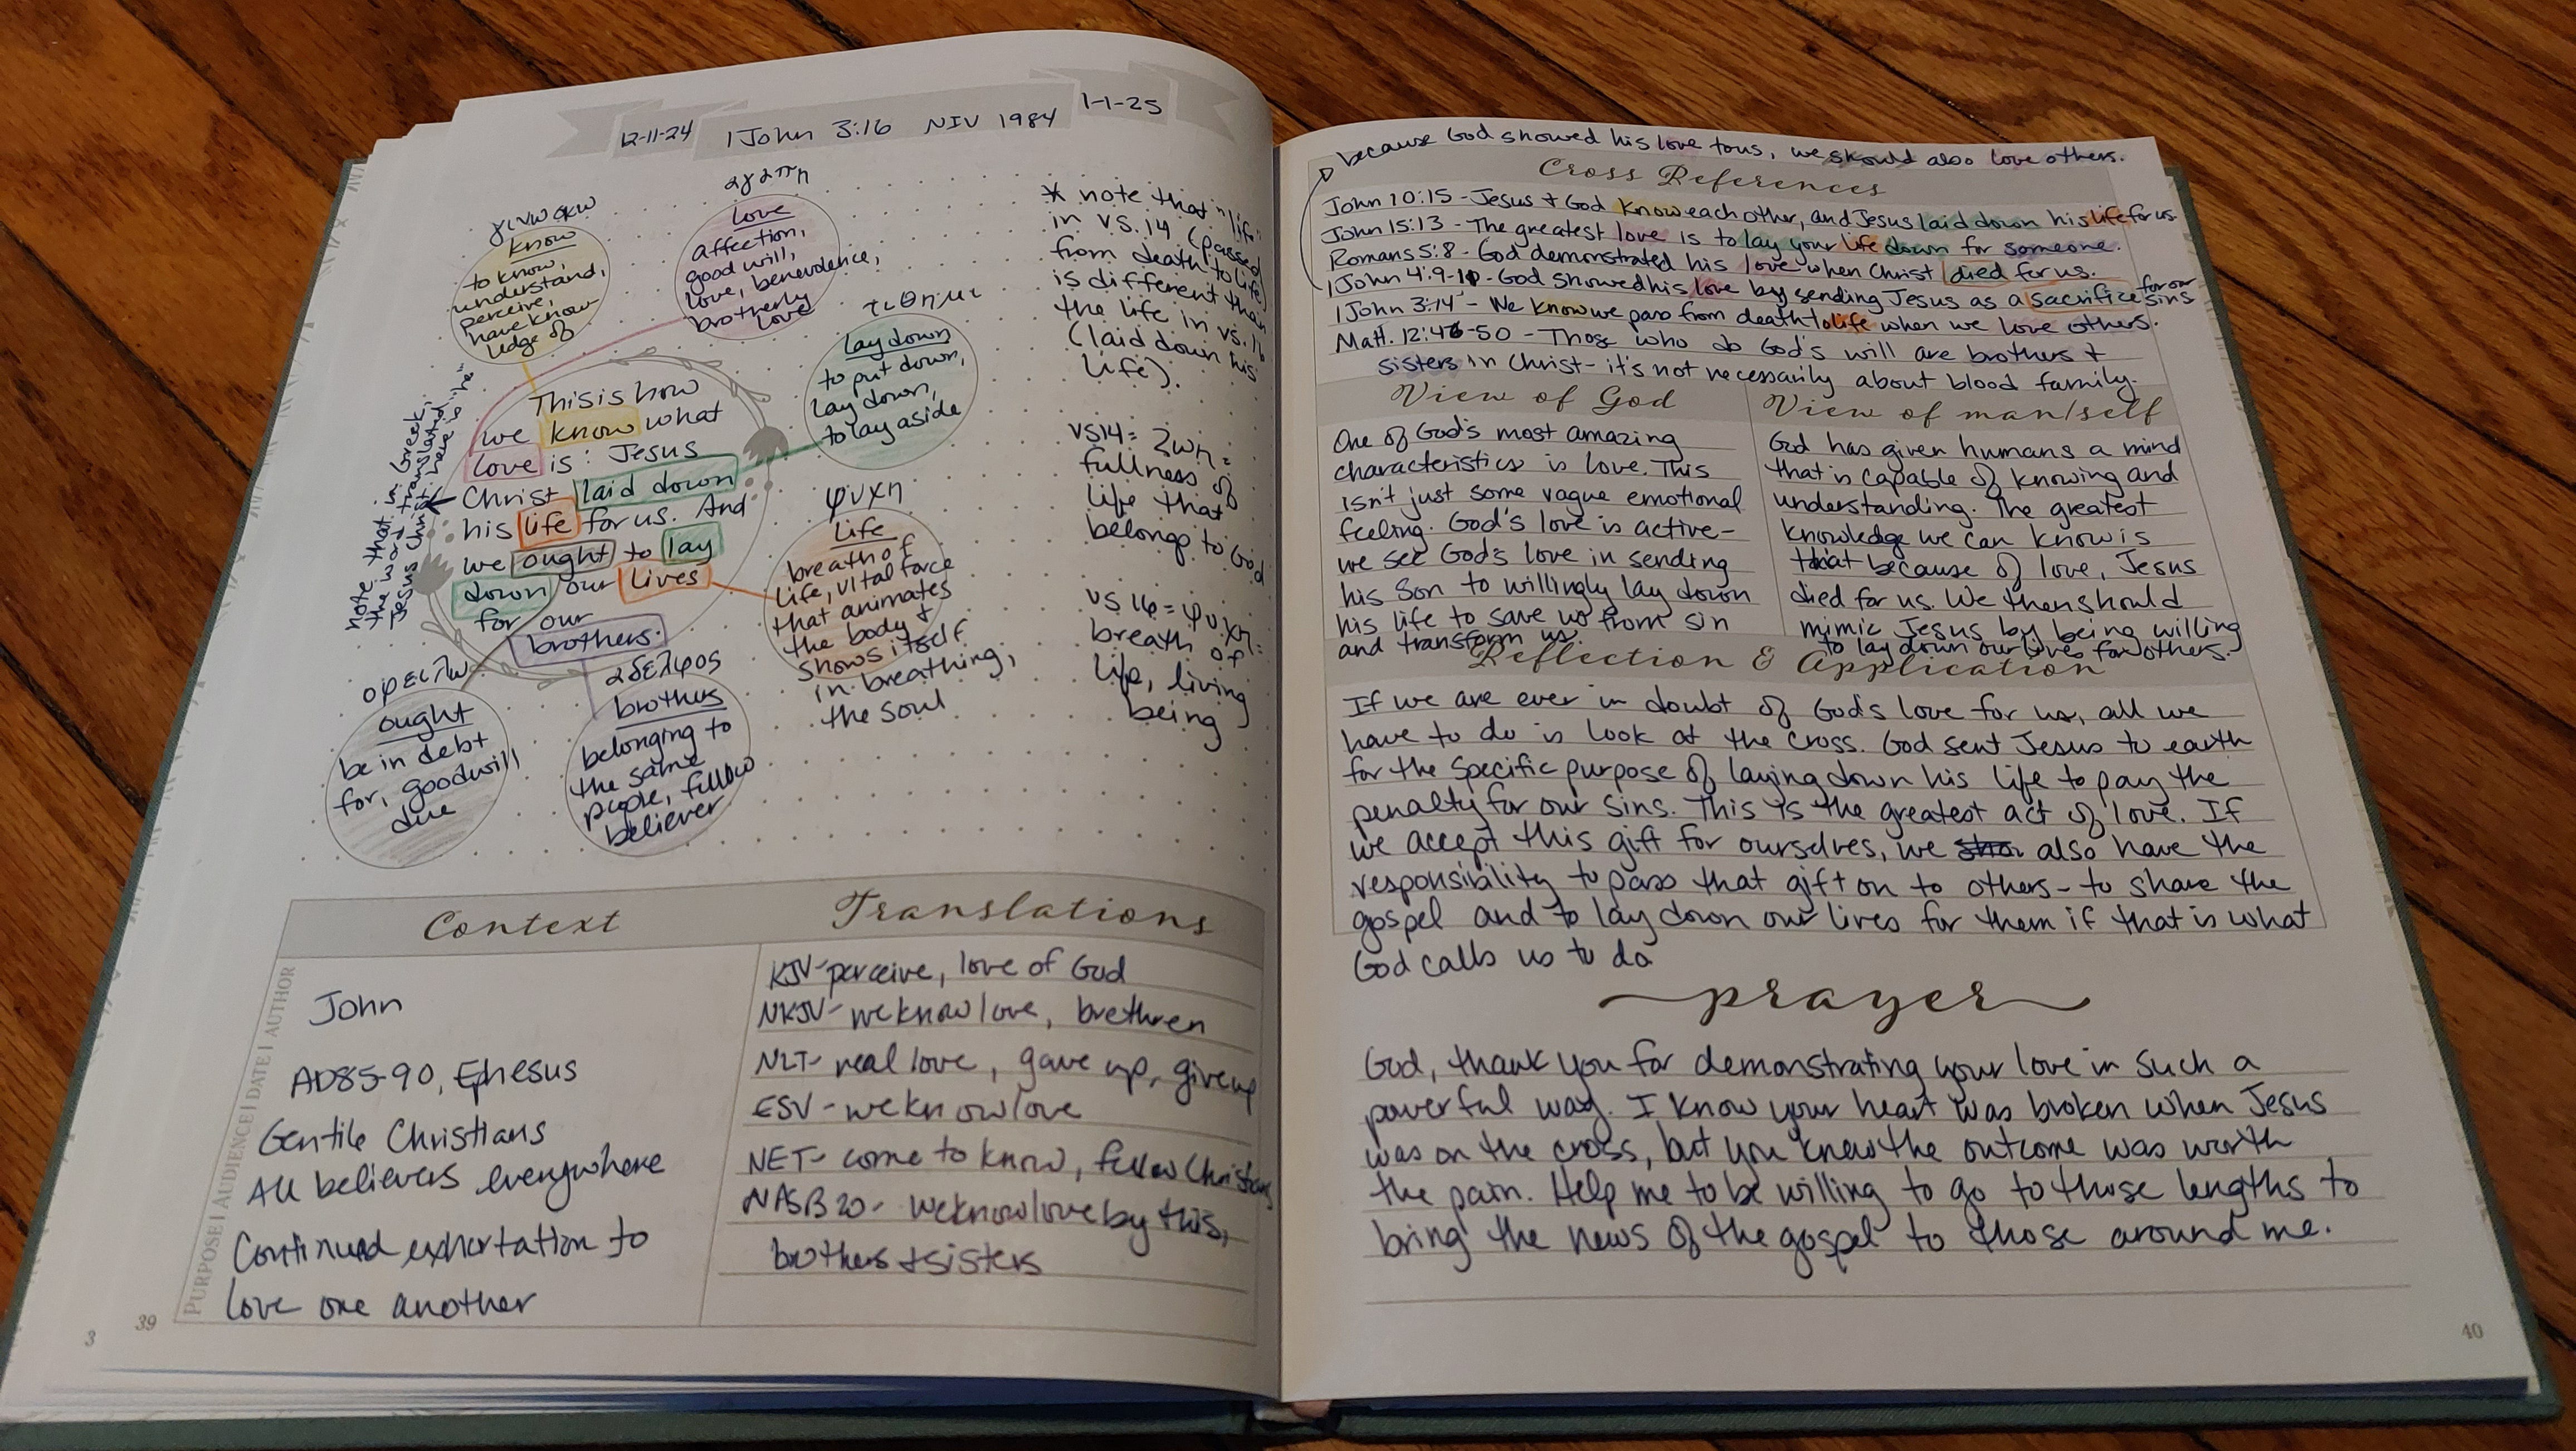 12-11-24 1 John 3:16 NIV 1984 1-1-25
γινωσκω
know
to know,
understand,
perceive,
have know-
ledge of
αγαπη
love
affection,
good will,
love, benevolence,
brotherly
love
τιθημι
lay down
to put down,
lay down,
to lay aside
* note that "life"
in vs. 14 (passed
from death to life)
is different than
the life in vs. 16
(laid down his
life).
vs14 = ζωη =
fullness of
life that
belongs to God
vs 16 = ψυχη =
breath of
life, living
being
note that in Greek,
the word translated
Jesus Christ here is "he"
This is how
we know what
love is: Jesus
Christ laid down
his life for us. And
we ought to lay
down our lives
for our
brothers.
φυχη
Life
breath of
life, vital force
that animates
the body +
shows itself
in breathing,
the soul
οφειλω
ought
be in debt
for, goodwill
due
αδελφος
brothers
belonging to
the same
people, fellow
believer
Context
PURPOSE | AUDIENCE | DATE | AUTHOR
John
AD85-90, Ephesus
Gentile Christians
All believers everywhere
Continued exhortation to
love one another
Translations
KJV-perceive, love of God
NKJV- we know love, brethren
NLT- real love, gave up, give up
ESV - we know love
NET- come to know, fellow Christians
NASB20- we know love by this,
brothers + sisters
3 39
because God showed his love to us, we should also love others.
Cross References
John 10:15 - Jesus + God know each other, and Jesus laid down his life for us.
John 15:13 - The greatest love is to lay your life down for someone.
Romans 5:8 - God demonstrated his love when Christ died for us.
1 John 4:9-10 - God showed his love by sending Jesus as a sacrifice for our sins
1 John 3:14 - We know we pass from death to life when we love others.
Matt. 12:46-50 - Those who do God's will are brothers +
sisters in Christ - it's not necessarily about blood family.
View of God
One of God's most amazing
characteristics is love. This
isn't just some vague emotional
feeling. God's love is active -
we see God's love in sending
his Son to willingly lay down
his life to save us from sin
and transform us.
View of man/self
God has given humans a mind
that is capable of knowing and
understanding. The greatest
knowledge we can know is
that because of love, Jesus
died for us. We then should
mimic Jesus by being willing
to lay down our lives for others.
Reflection & Application
If we are ever in doubt of God's love for us, all we
have to do is look at the cross. God sent Jesus to earth
for the specific purpose of laying down his life to pay the
penalty for our sins. This is the greatest act of love. If
we accept this gift for ourselves, we also have the
responsibility to pass that gift on to others - to share the
gospel and to lay down our lives for them if that is what
God calls us to do
prayer
God, thank you for demonstrating your love in such a
powerful way. I know your heart was broken when Jesus
was on the cross, but you knew the outcome was worth
the pain. Help me to be willing to go to those lengths to
bring the news of the gospel to those around me.
40